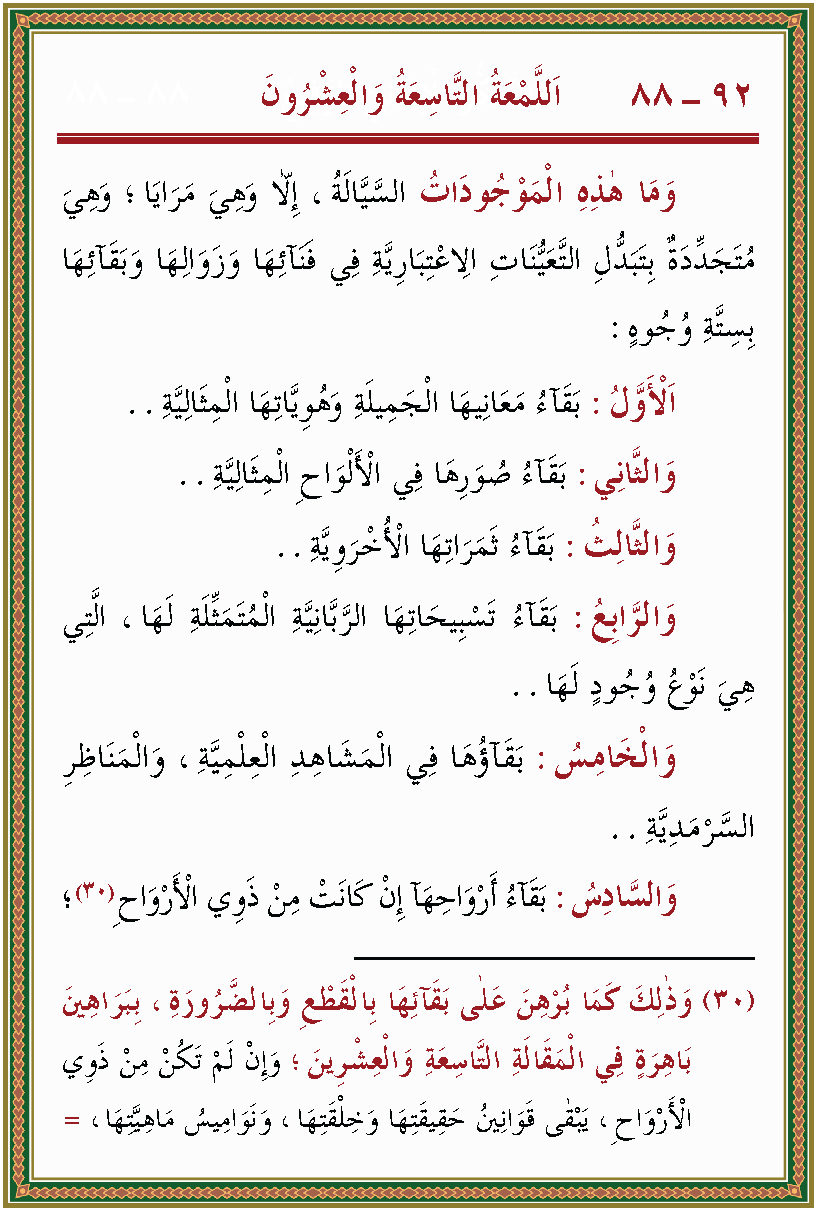 ٩٢ ــ ٨٨ اَللَّمْعَةُ التَّاسِعَةُ وَالْعِشْرُونَ
وَمَا هٰذِهِ الْمَوْجُودَاتُ السَّيَّالَةُ ، إِلَّا وَهِيَ مَرَايَا ؛ وَهِيَ
مُتَجَدِّدَةٌ بِتَبَدُّلِ التَّعَيُّنَاتِ الِاعْتِبَارِيَّةِ فِي فَنَآئِهَا وَزَوَالِهَا وَبَقَآئِهَا
بِسِتَّةِ وُجُوهٍ :
اَلْأَوَّلُ : بَقَآءُ مَعَانِيهَا الْجَمِيلَةِ وَهُوِيَّاتِهَا الْمِثَالِيَّةِ . .
وَالثَّانِي : بَقَآءُ صُوَرِهَا فِي الْأَلْوَاحِ الْمِثَالِيَّةِ . .
وَالثَّالِثُ : بَقَآءُ ثَمَرَاتِهَا الْأُخْرَوِيَّةِ . .
وَالرَّابِعُ : بَقَآءُ تَسْبِيحَاتِهَا الرَّبَّانِيَّةِ الْمُتَمَثِّلَةِ لَهَا ، الَّتِي
هِيَ نَوْعُ وُجُودٍ لَهَا . .
وَالْخَامِسُ : بَقَآؤُهَا فِي الْمَشَاهِدِ الْعِلْمِيَّةِ ، وَالْمَنَاظِرِ
السَّرْمَدِيَّةِ . .
وَالسَّادِسُ : بَقَآءُ أَرْوَاحِهَآ إِنْ كَانَتْ مِنْ ذَوِي الْأَرْوَاحِ(٣٠) ؛
(٣٠) وَذٰلِكَ كَمَا بُرْهِنَ عَلٰى بَقَآئِهَا بِالْقَطْعِ وَبِالضَّرُورَةِ ، بِبَرَاهِينَ
بَاهِرَةٍ فِي الْمَقَالَةِ التَّاسِعَةِ وَالْعِشْرِينَ ؛ وَإِنْ لَمْ تَكُنْ مِنْ ذَوِي
الْأَرْوَاحِ ، يَبْقٰى قَوَانِينُ حَقِيقَتِهَا وَخِلْقَتِهَا ، وَنَوَامِيسُ مَاهِيَّتِهَا ، =